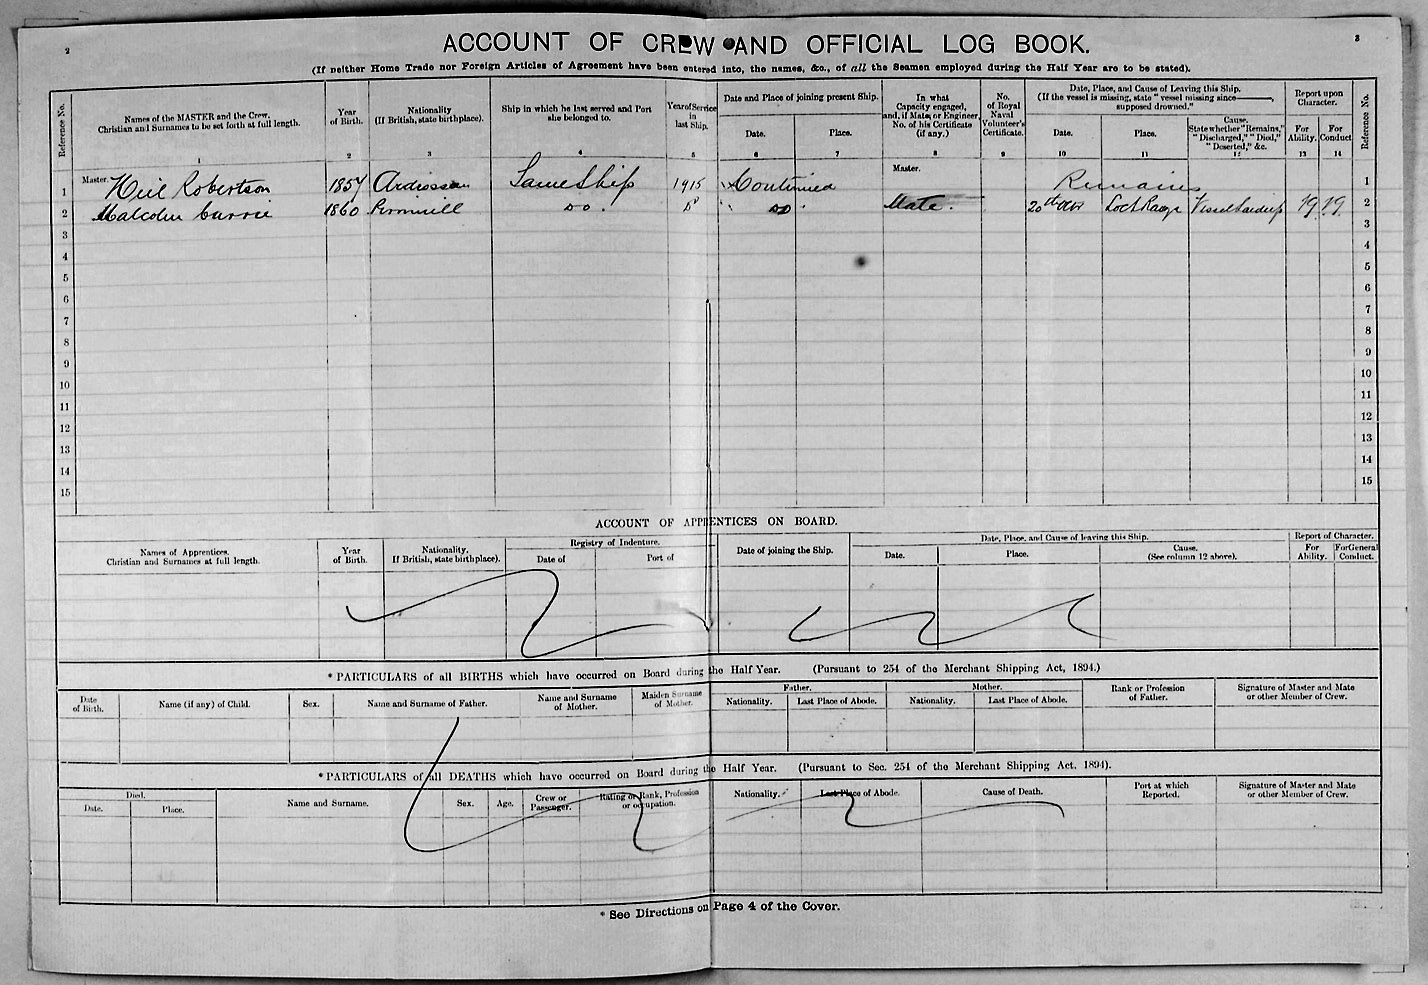 2
3
ACCOUNT OF CREW AND OFFICIAL LOG BOOK.
(If neither Home Trade nor Foreign Articles of Agreement have been entered into, the names, &c., of all the Seamen employed during the Half Year are to be stated).
Reference No.
Names of the MASTER and the Crew.
Christian and Surnames to be set forth at full length.
1
Year
of Birth.
2
Nationality
(If British, state birthplace).
3
Ship in which he last served and Port
she belonged to.
4
Year of Service
in
last Ship.
5
Date and Place of joining present Ship.
Date.
6
Place.
7
In what
Capacity engaged,
and, if Mate, or Engineer,
No. of his Certificate
(if any.)
8
No.
of Royal
Naval
Volunteer's
Certificate.
9
Date, Place, and Cause of Leaving this Ship.
(If the vessel is missing, state "vessel missing since———,
supposed drowned."
Date.
10
Place.
11
Cause.
State whether "Remains,"
"Discharged," "Died,"
"Deserted," &c.
12
Report upon
Character.
For
Ability.
13
For
Conduct
14
Reference No.
1 Master. Neil Robertson 1857 Ardrossan Same Ship 1915 Continued Master. Remains 1
2 Malcolm Currie 1860 Do. Do Do Mate. 20th Loch Ranza Vessel laid up 19 19. 2
3 3
4 4
5 5
6 6
7 7
8 8
9 9
10 10
11 11
12 12
13 13
14 14
15 15
ACCOUNT OF APPRENTICES ON BOARD.
Names of Apprentices.
Christian and Surnames at full length.
Year
of Birth.
Nationality.
If British, state birthplace).
Registry of Indenture.
Date of
Port of
Date of joining the Ship.
Date, Place, and Cause of leaving this Ship.
Date.
Place.
Cause.
(See column 12 above).
Report of Character.
For
Ability.
For General
Conduct.
* PARTICULARS of all BIRTHS which have occurred on Board during the Half Year. (Pursuant to 254 of the Merchant Shipping Act, 1894.)
Date
of Birth.
Name (if any) of Child.
Sex.
Name and Surname of Father.
Name and Surname
of Mother.
Maiden Surname
of Mother.
Father.
Nationality.
Last Place of Abode.
Mother.
Nationality.
Last Place of Abode.
Rank or Profession
of Father.
Signature of Master and Mate
or other Member of Crew.
* PARTICULARS of all DEATHS which have occurred on Board during the Half Year. (Pursuant to Sec. 254 of the Merchant Shipping Act, 1894).
Died.
Date.
Place.
Name and Surname.
Sex.
Age.
Crew or
Passenger.
Rating or Rank, Profession
or occupation.
Nationality.
Last Place of Abode.
Cause of Death.
Port at which
Reported.
Signature of Master and Mate
or other Member of Crew.
* See Directions on Page 4 of the Cover.